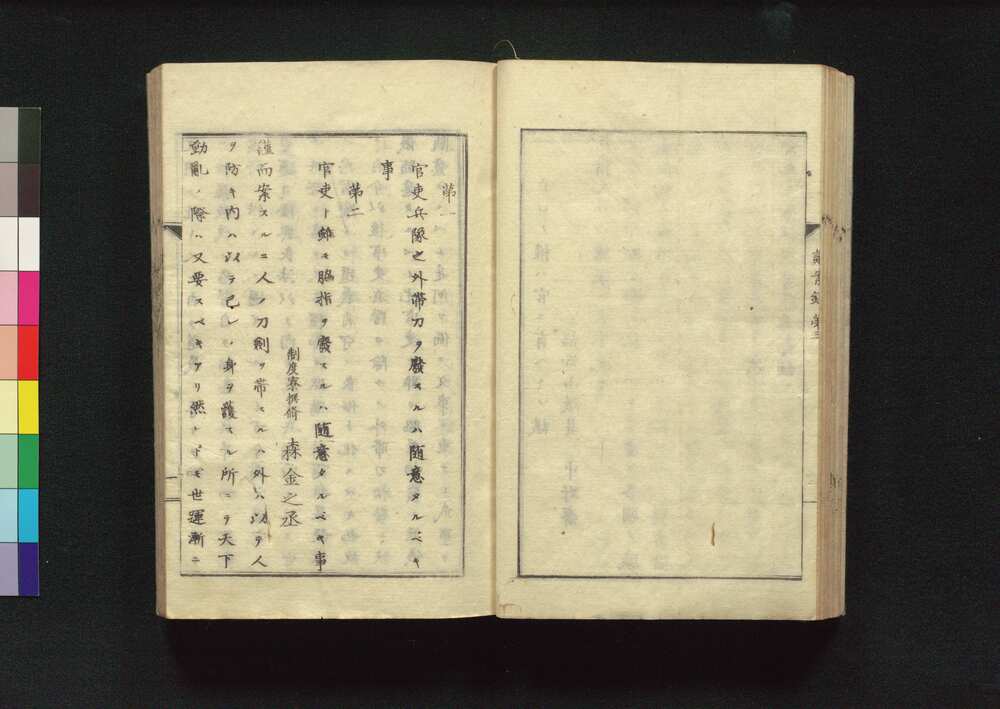 議案録 第三
第一
官吏兵隊之外帶刀ヲ廢スルハ随意タルベキ
事
第二
官吏ト雖モ脇指ヲ廢スルハ随意タルベキ事
制度寮撰脩 森金之丞
謹而案スルニ人ノ刀劍ヲ帶スルハ外ハ以テ人
ヲ防キ内ハ以テ己レノ身ヲ護スル所ニテ天下
動亂ノ際ハ又要スベキアリ然レ𪜈世運漸ニ